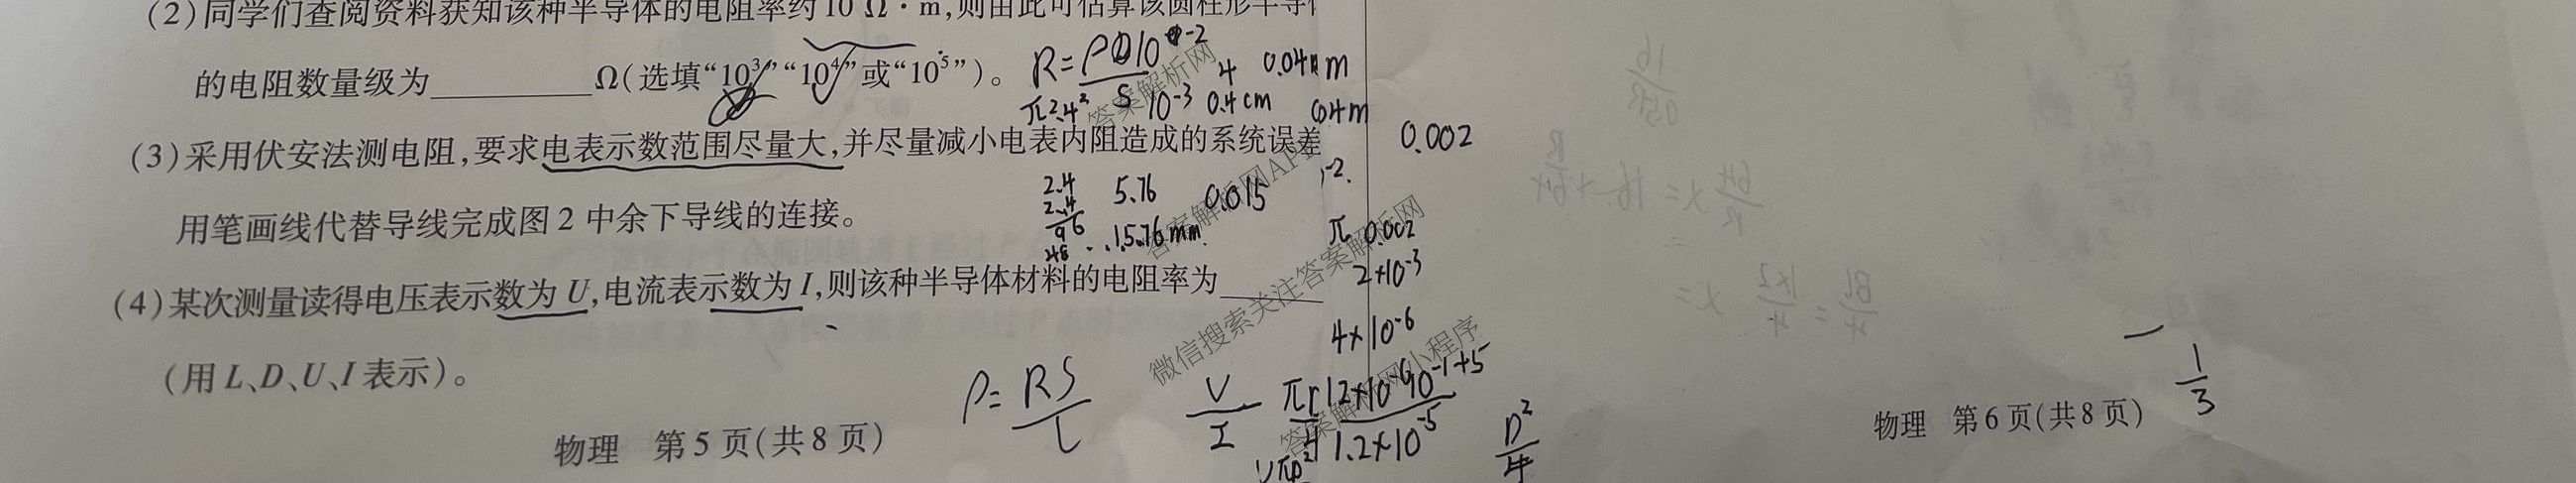 (2)同学们查阅资料获知该种半导体的电阻率约10 Ω·m,则由此可估算该圆柱形半导
的电阻数量级为________Ω(选填“10³”“10⁴”或“10⁵”)。
(3)采用伏安法测电阻,要求电表示数范围尽量大,并尽量减小电表内阻造成的系统误差
用笔画线代替导线完成图2中余下导线的连接。
(4)某次测量读得电压表示数为U,电流表示数为I,则该种半导体材料的电阻率为________
(用L、D、U、I表示)。
物理 第5页(共8页)
物理 第6页(共8页)
4 0.04 m
π2.4² S 10⁻³ 0.4cm
0.002
2.4
2.4
96
48
5.76
15.76mm
0.015
π 0.002
2×10⁻³
4×10⁻⁶
ρ= RS/L
U/I
1.2×10⁻⁵
D²/4
1/3
答案解析网
答案解析网APP
答案解析网
微信搜索关注答案解析网
答案解析网小程序